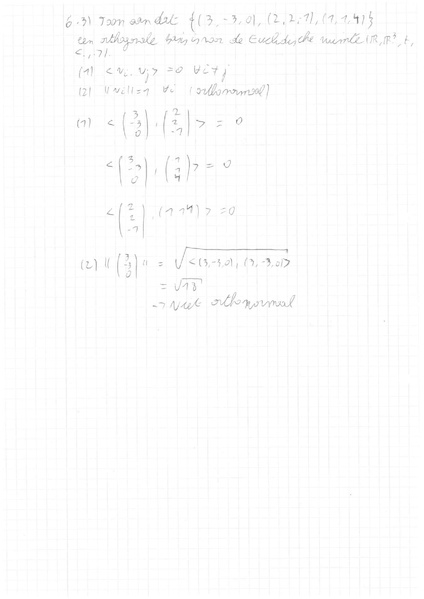 6.3) Toon aan dat {(3,-3,0), (2,2,-1), (1,1,4)}
een orthogonale basis is van de Euclidische ruimte (ℝ, ℝ³, +,
<.,.>).
(1) <vi, vj> = 0 ∀ i ≠ j
(2) ||vi|| = 1 ∀ i (orthonormaal)
(1) < (3 -3 0), (2 2 -1) > = 0
< (3 -3 0), (1 1 4) > = 0
< (2 2 -1), (1 1 4) > = 0
(2) || (3 -3 0) || = √<(3,-3,0), (3,-3,0)>
= √18
→ Niet orthonormaal